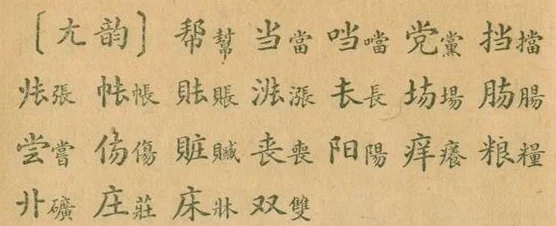 [ㄤ韵] 帮幫 当當 𪠽噹 党黨 挡擋
张張 帐帳 账賬 涨漲 长長 场場 肠腸
尝嘗 伤傷 賍贓 丧喪 阳陽 痒癢 粮糧
卝礦 庄莊 床牀 双雙